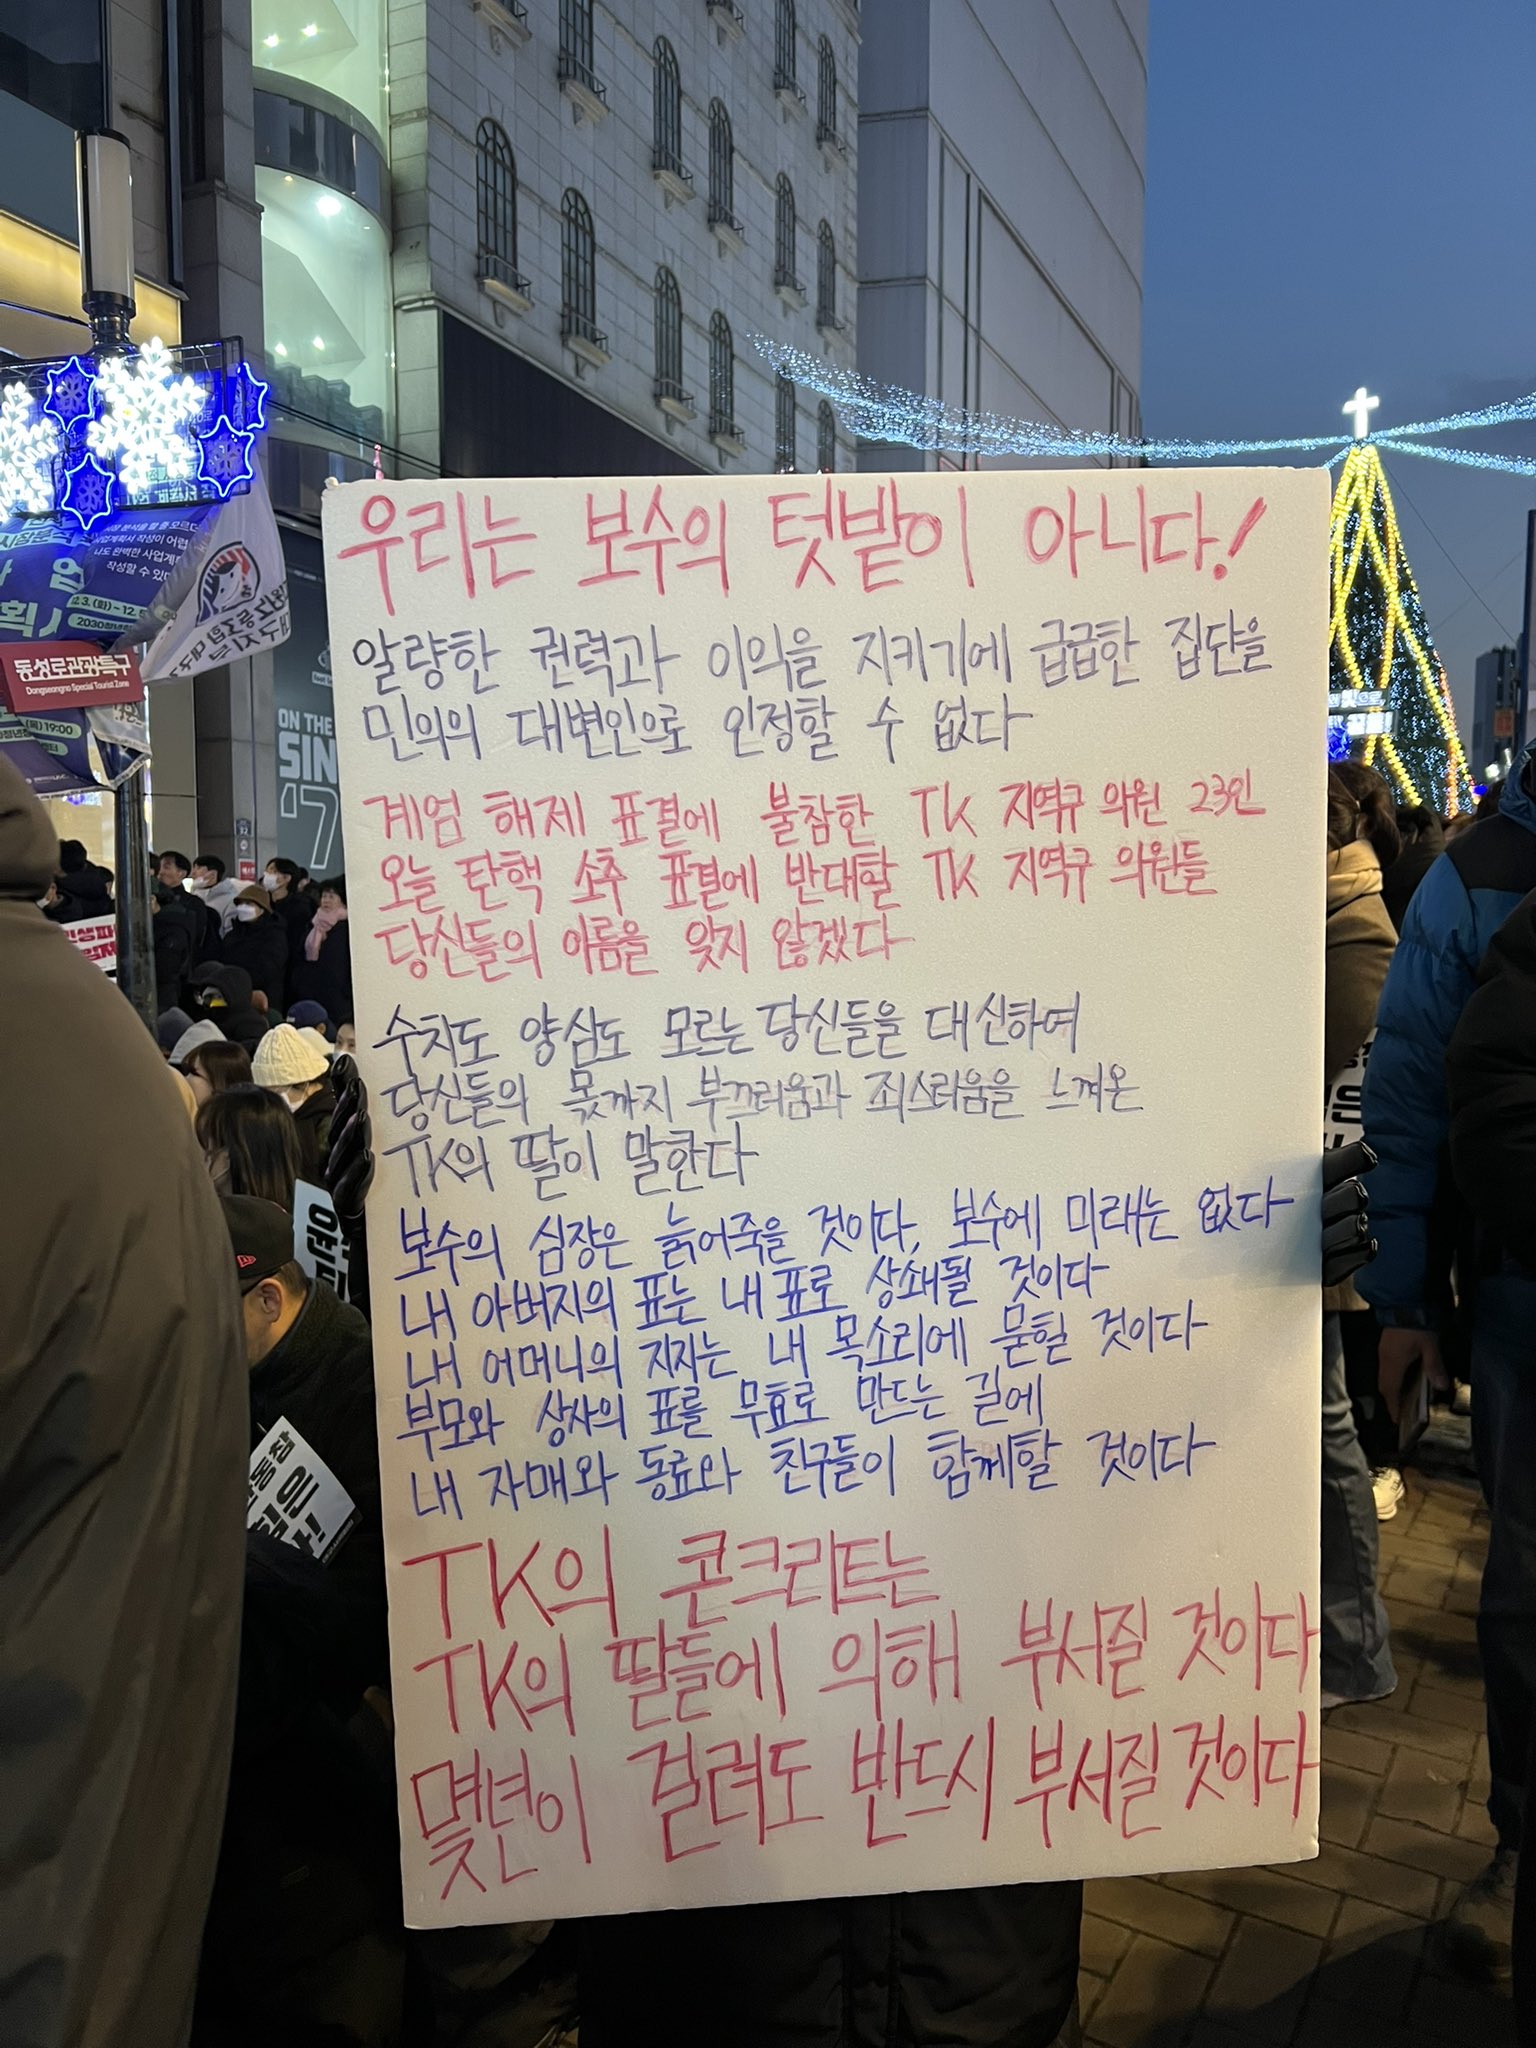 우리는 보수의 텃밭이 아니다!
알량한 권력과 이익을 지키기에 급급한 집단을
민의의 대변인으로 인정할 수 없다
계엄 해제 표결에 불참한 TK 지역구 의원 23인
오늘 탄핵 소추 표결에 반대할 TK 지역구 의원들
당신들의 이름을 잊지 않겠다
수치도 양심도 모르는 당신들을 대신하여
당신들의 몫까지 부끄러움과 죄스러움을 느껴온
TK의 딸이 말한다
보수의 심장은 늙어죽을 것이다, 보수에 미래는 없다
내 아버지의 표는 내 표로 상쇄될 것이다
내 어머니의 지지는 내 목소리에 묻힐 것이다
부모와 상사의 표를 무효로 만드는 길에
내 자매와 동료와 친구들이 함께할 것이다
TK의 콘크리트는
TK의 딸들에 의해 부서질 것이다
몇년이 걸려도 반드시 부서질 것이다
동성로관광특구
Dongseongno Special Tourist Zone
나도 완벽한 사업계
작성할 수 있다
2.3.(화)~12.5
(목)19:00
ON THE
SIN
'7